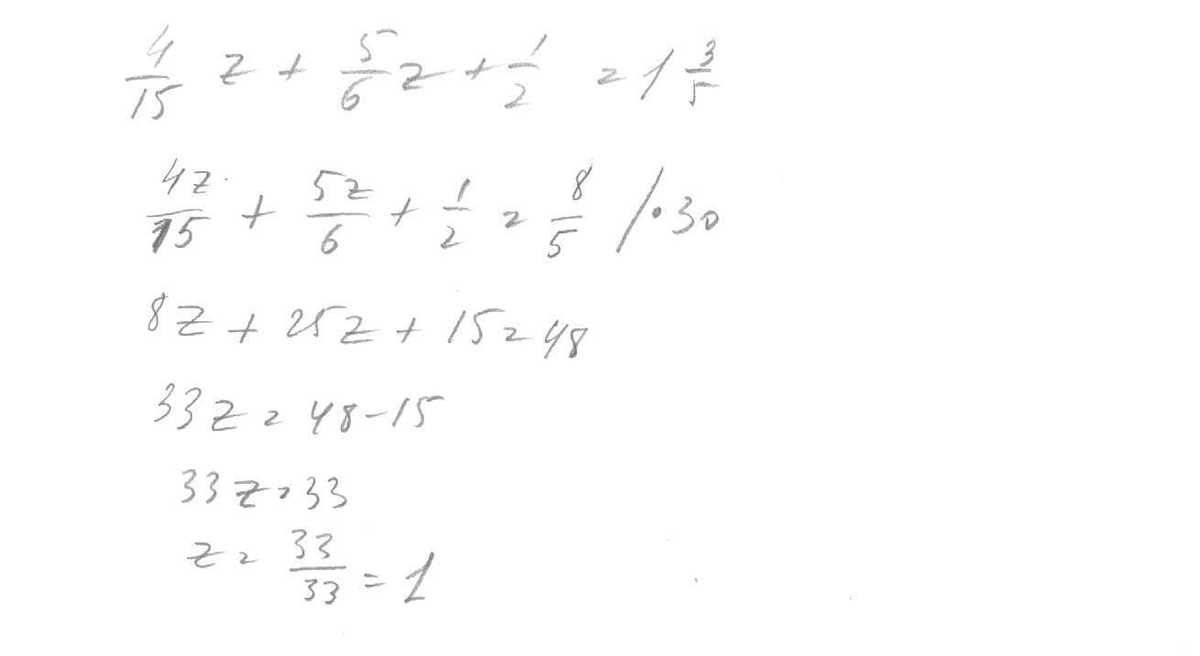 4/15 z + 5/6 z + 1/2 = 1 3/5
4z/15 + 5z/6 + 1/2 = 8/5 /·30
8z + 25z + 15 = 48
33z = 48-15
33z = 33
z = 33/33 = 1